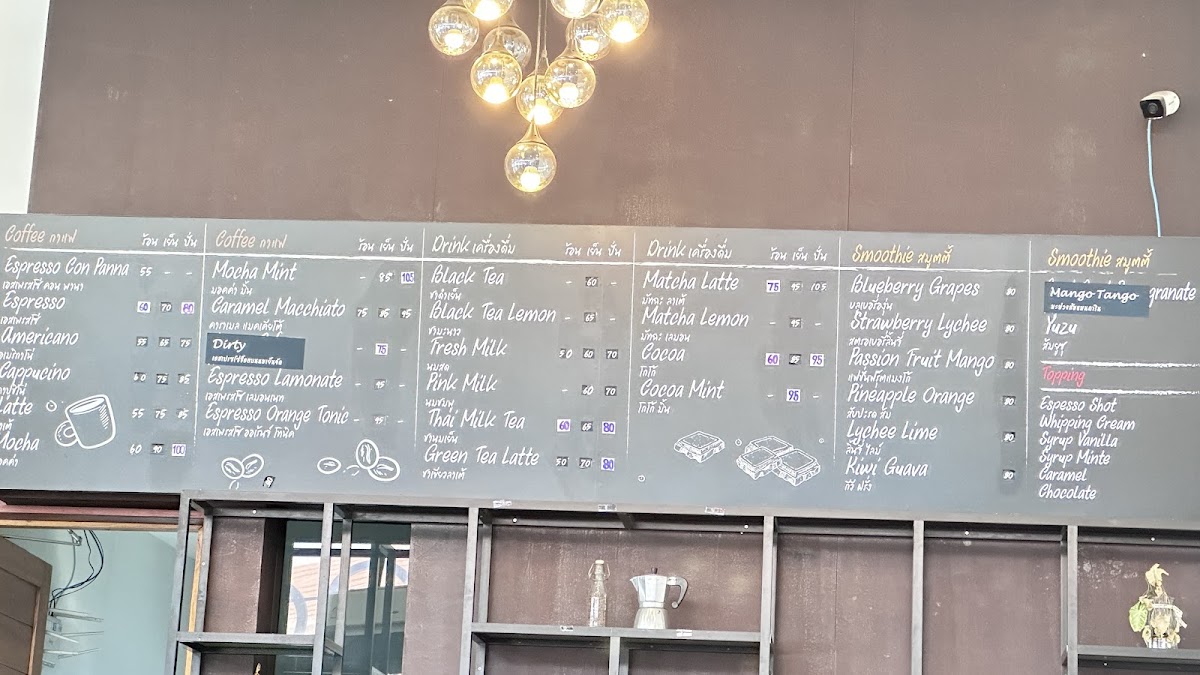 Coffee กาแฟ ร้อน เย็น ปั่น
Espresso Con Panna 55 - -
เอสเพรสโซ่ คอน พานา
Espresso 60 70 80
เอสเพรสโซ่
Americano 55 65 75
อเมริกาโน่
Cappucino 60 75 85
Latte 55 75 85
Mocha 60 90 100
Coffee กาแฟ ร้อน เย็น ปั่น
Mocha Mint - 85 105
มอคค่า มิ้น
Caramel Macchiato 75 85 95
คาราเมล แมคเคียโต้
Dirty - 75 -
Espresso Lamonate - 95 -
เอสเพรสโซ่ เลมอนเนท
Espresso Orange Tonic - 95 -
เอสเพรสโซ่ ออเร้นจ์ โทนิค
Drink เครื่องดื่ม ร้อน เย็น ปั่น
Black Tea - 60 -
ชาดำเย็น
Black Tea Lemon - 65 -
ชามะนาว
Fresh Milk 50 60 70
นมสด
Pink Milk - 60 70
นมชมพู
Thai Milk Tea 60 65 80
ชานมเย็น
Green Tea Latte 50 70 80
ชาเขียวลาเต้
Drink เครื่องดื่ม ร้อน เย็น ปั่น
Matcha Latte 75 95 105
มัทฉะ ลาเต้
Matcha Lemon - 95 -
มัทฉะ เลมอน
Cocoa 60 85 95
โกโก้
Cocoa Mint - 95 -
โกโก้ มิ้น
Smoothie สมูตตี้
Blueberry Grapes 80
บลูเบอรี่องุ่น
Strawberry Lychee 80
สตอเบอรี่ลิ้นจี่
Passion Fruit Mango 80
แฟชั่นฟรุ๊ทมะม่วง
Pineapple Orange 80
สับปะรด ส้ม
Lychee Lime 80
ลิ้นจี่ ไลม์
Kiwi Guava 80
กีวี่ ฝรั่ง
Smoothie สมูตตี้
Mango Tango
Yuzu
ส้มยูซุ
Topping
Espesso Shot
Whipping Cream
Syrup Vanilla
Syrup Minte
Caramel
Chocolate